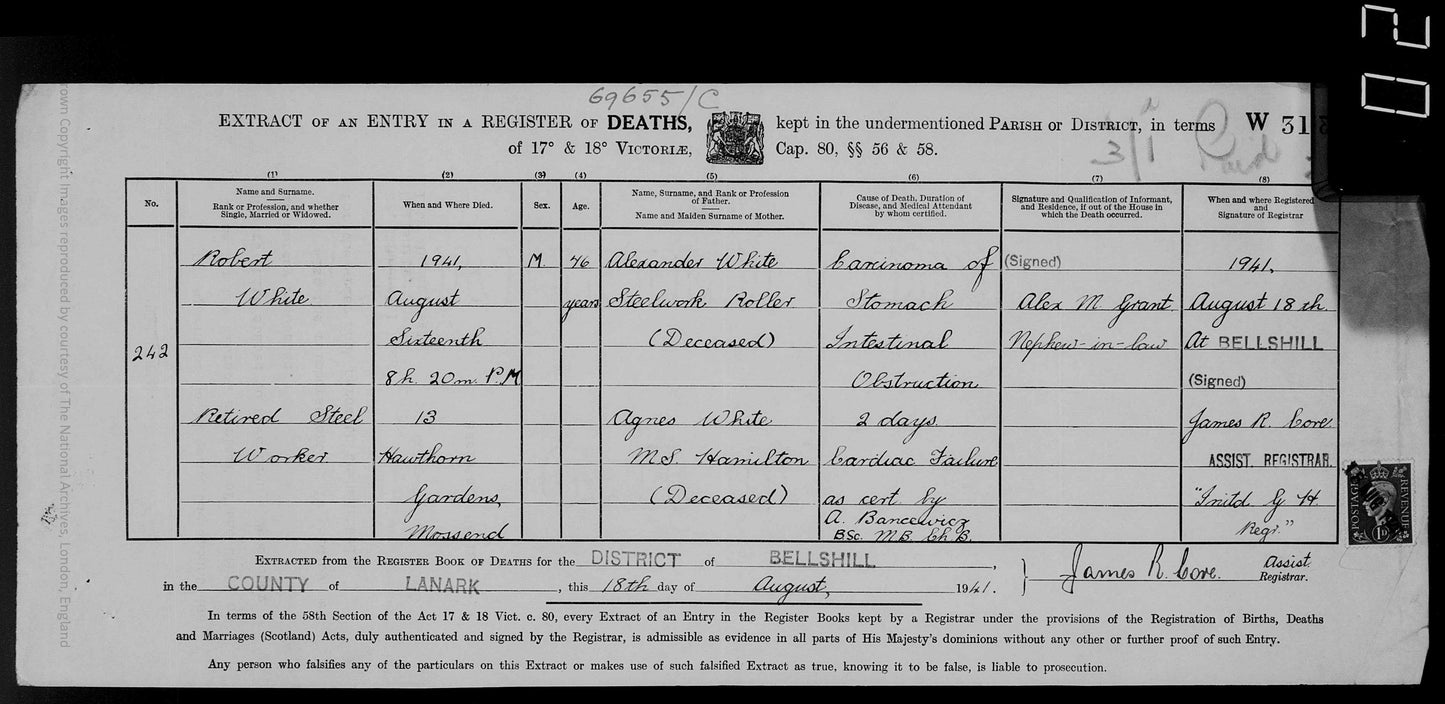 02
69655/C
EXTRACT OF AN ENTRY IN A REGISTER OF DEATHS, kept in the undermentioned PARISH OR DISTRICT, in terms W 31
of 17° & 18° VICTORIÆ, Cap. 80, §§ 56 & 58.
3/1 Paid
(1) (2) (3) (4) (5) (6) (7) (8)
No.
Name and Surname.
Rank or Profession, and whether
Single, Married or Widowed.
When and Where Died.
Sex.
Age.
Name, Surname, and Rank or Profession
of Father.
Name and Maiden Surname of Mother.
Cause of Death, Duration of
Disease, and Medical Attendant
by whom certified.
Signature and Qualification of Informant,
and Residence, if out of the House in
which the Death occurred.
When and where Registered
and
Signature of Registrar
242
Robert
White
Retired Steel
Worker
1941,
August
Sixteenth
8h. 20m. P.M
13
Hawthorn
Gardens,
Mossend
M
76
years
Alexander White
Steelwork Roller
(Deceased)
Agnes White
M.S. Hamilton
(Deceased)
Carcinoma of
Stomach
Intestinal
Obstruction
2 days.
Cardiac Failure
as cert. by
A. Bancewicz
BSc. M.B. Ch.B.
(Signed)
Alex M Grant
Nephew-in-law
1941,
August 18th.
At BELLSHILL
(Signed)
James R. Core
ASSIST. REGISTRAR.
"Initd G H
Regr."
POSTAGE REVENUE
1D
EXTRACTED from the REGISTER BOOK OF DEATHS for the DISTRICT of BELLSHILL,
in the COUNTY of LANARK, this 18th day of August, 1941.
James R. Core. Assist.
Registrar.
In terms of the 58th Section of the Act 17 & 18 Vict. c. 80, every Extract of an Entry in the Register Books kept by a Registrar under the provisions of the Registration of Births, Deaths
and Marriages (Scotland) Acts, duly authenticated and signed by the Registrar, is admissible as evidence in all parts of His Majesty's dominions without any other or further proof of such Entry.
Any person who falsifies any of the particulars on this Extract or makes use of such falsified Extract as true, knowing it to be false, is liable to prosecution.
rown Copyright Images reproduced by courtesy of The National Archives, London, England